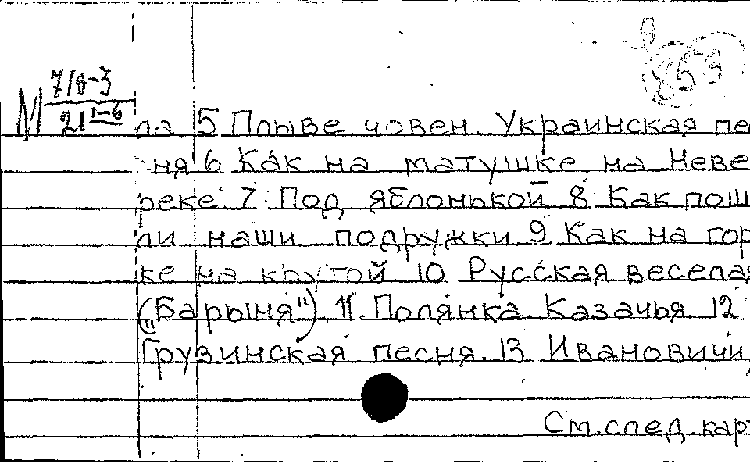 М 7/8-3
21 1-6
853
ла 5 Плыве човен. Украинская пе
ня 6 Как на матушке на Неве
реке. 7 Под яблонькой 8 Как пош
ли наши подружки 9 Как на гор
ке на крутой 10 Русская весела
("Барыня") 11. Полянка Казачья 12
Грузинская песня. 13 Ивановичи,
См. след. кар